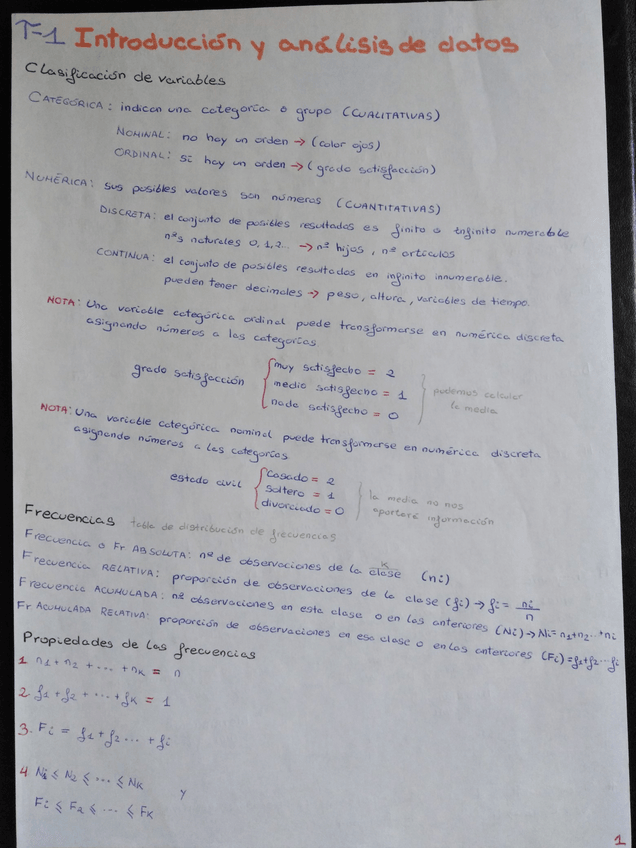 T-1 Introducción y análisis de datos
Clasificación de variables
CATEGÓRICA: indican una categoría o grupo (CUALITATIVAS)
NOMINAL: no hay un orden → (color ojos)
ORDINAL: si hay un orden → (grado satisfacción)
NUMÉRICA: sus posibles valores son números (CUANTITATIVAS)
DISCRETA: el conjunto de posibles resultados es finito o infinito numerable
nºs naturales 0,1,2... → nº hijos, nº artículos
CONTINUA: el conjunto de posibles resultados en infinito innumerable.
pueden tener decimales → peso, altura, variables de tiempo.
NOTA: Una variable categórica ordinal puede transformarse en numérica discreta
asignando números a las categorías
muy satisfecho = 2
grado satisfacción medio satisfecho = 1 podemos calcular
nada satisfecho = 0 la media
NOTA: Una variable categórica nominal puede transformarse en numérica discreta
asignando números a las categorías
casado = 2
estado civil soltero = 1 la media no nos
divorciado = 0 aportará información
Frecuencias tabla de distribución de frecuencias
Frecuencia o Fr ABSOLUTA: nº de observaciones de la clase K (ni)
Frecuencia RELATIVA: proporción de observaciones de la clase (fi) → fi = ni/n
Frecuencia ACUMULADA: nº observaciones en esta clase o en las anteriores (Ni) → Ni = n1+n2...+ni
Fr ACUMULADA RELATIVA: proporción de observaciones en esa clase o en las anteriores (Fi) = f1+f2...fi
Propiedades de las frecuencias
1 n1 + n2 + ... + nK = n
2 f1 + f2 + ... + fK = 1
3. Fi = f1 + f2 ... + fi
4. Ni ≤ N2 ≤ ... ≤ NK y
Fi ≤ F2 ≤ ... ≤ FK
1